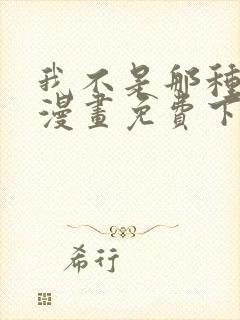 我不是那種
漫畫免費下
希行